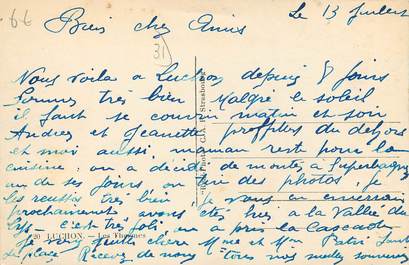 66
Le 13 Juillet
Bien cher Amis
31
Nous voila a Luchon depuis 8 jours
Sommes très bien Malgré le soleil
il faut se couvrir matin et soir
Andrée et Jeanette profites du dehors
et moi aussi, maman rest pour la
cuisine, on a décidé de monter à Superbagnères
un de ses jours, on fera des photos, je
les reussis très bien, je vous en enverrai
prochainement avons été hier a la Vallée du
Lys, c'est très joli, on a pris la Cascade
20 LUCHON. - Les Thermes
je vous quitte chère Mme et Mr
de place Recevez de nous tous nos meilleurs souvenirs